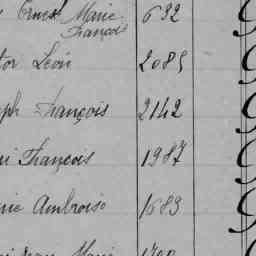 Ernest Marie 632
François
tor Léon 2085
ph François 2142
ri François 1987
rie Ambroise 1689
Marie